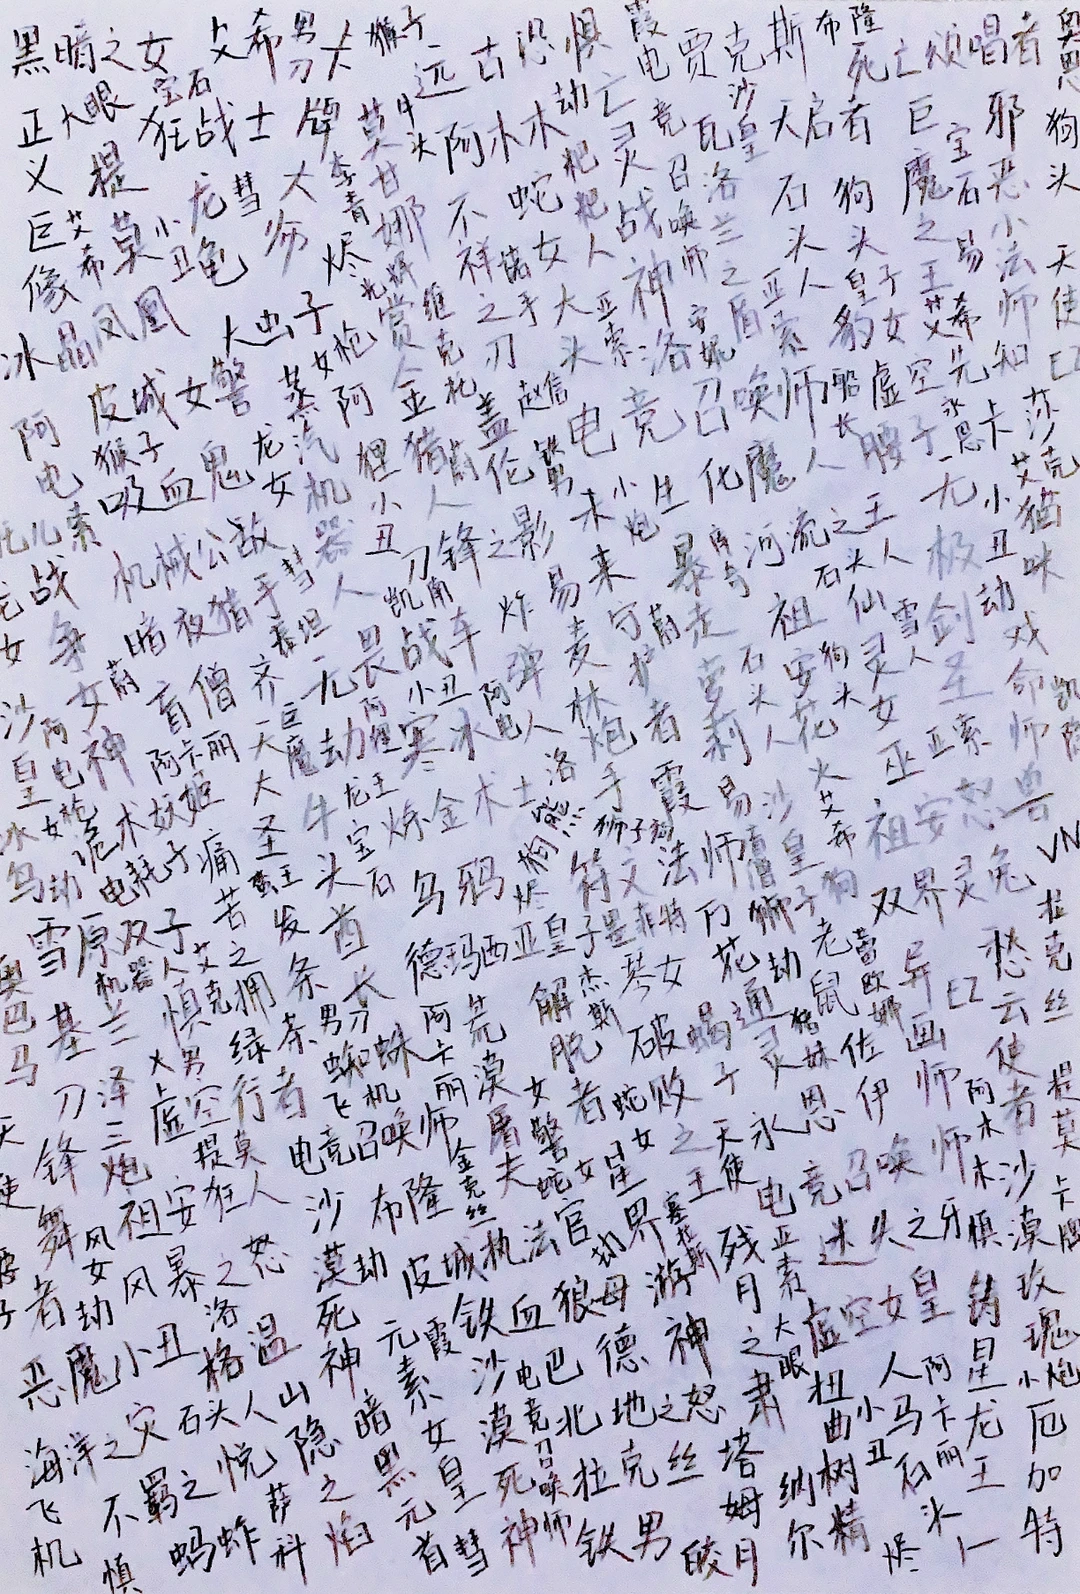 黑暗之女 艾希 男刀 犬 猴子 远古恐惧 霞 电 贾克斯 布隆 死亡颂唱者 奥恩
正义巨像 大眼 宝石 狂战士 牌 莫甘娜 牛头 阿木木 劫 亡灵战神 电竞召唤师 瓦洛兰之盾 沙皇 天启者 巨魔之王 宝石 邪恶小法师 狗头
提莫 艾希 小丑 龙龟 彗 大爷 李青 烬 不祥之刃 蛇女 诺手 杷杷人 石头人 狗头 皇子 易 天使
冰晶凤凰 大虫子 女枪 赏金猎人 维克托 大头 亚索 洛 安妮 亚索 豹女 艾希 先知 EZ
皮城女警 蒸汽机器人 阿狸 盖伦 赵信 电竞召唤师 船长 虚空 腰子 卡莎
阿电 猴子 吸血鬼 龙女 小丑 铁男 木 小炮 生化魔人 无极剑圣 小丑 艾克 猫咪
托儿素 机械公敌 彗 刀锋之影 易 未来守护者 暴走萝莉 河流之王 石头人 仙灵女巫 雪人 劫 戏命师
龙女 战争女神 暗夜猎手 泰坦 凯南 无畏战车 炸弹人 麦林炮手 蔚 祖安花火 狗头 凯隐
沙皇 阿电 蔚 盲僧 齐天大圣 巨魔 劫 阿狸 小丑 寒冰 阿电 石头人 亚索 兽
冰鸟 女枪 阿卡丽 诡术妖姬 牛头酋长 龙王 宝石 炼金术士 洛 熊 霞 易 沙皇 艾希 祖安怒兽 VN
劫 电耗子 痛苦之拥 蛮王 发条 乌鸦 烬 狮子狗 符文法师 盲僧 狮子狗 双界灵兔 拉克丝
雪原双子 机器人 艾克 茶 男刀 德玛西亚皇子 杰斯 是菲特 琴女 阿花 劫 老鼠 蕾欧娜 异画师 EZ 愁云使者
奥巴马 基兰 慎 绿行者 蜘蛛 飞机 阿卡丽 荒漠屠夫 解脱者 破败之王 蝎子 通灵 猪妹 佐伊 永恩 提莫
刀锋舞者 泽三炮 火男 虚空 提莫 电竞召唤师 金克丝 女警 蛇女 星界游神 天使 电竞召唤师 阿木木 卡牌
天使 风女 祖安狂人 沙漠死神 布隆 蛇女 塞拉斯 残月之肃 亚索 迷失之牙 慎 沙漠玫瑰
腰子 劫 风暴之怒 劫 皮城执法官 劫 大眼 虚空女皇 铸星龙王
恶魔小丑 洛 格温 元素女皇 霞 铁血狼母 扭曲树精 小丑 人马 阿卡丽 小炮
海洋之灾 石头人 山隐之焰 暗黑元首 沙漠死神 电竞召唤师 巴德 北地之怒 石头人 厄加特
飞机 不羁之悦 萨科 拉克丝 塔姆 纳尔
慎 蚂蚱 彗 铁男 皎月 烬